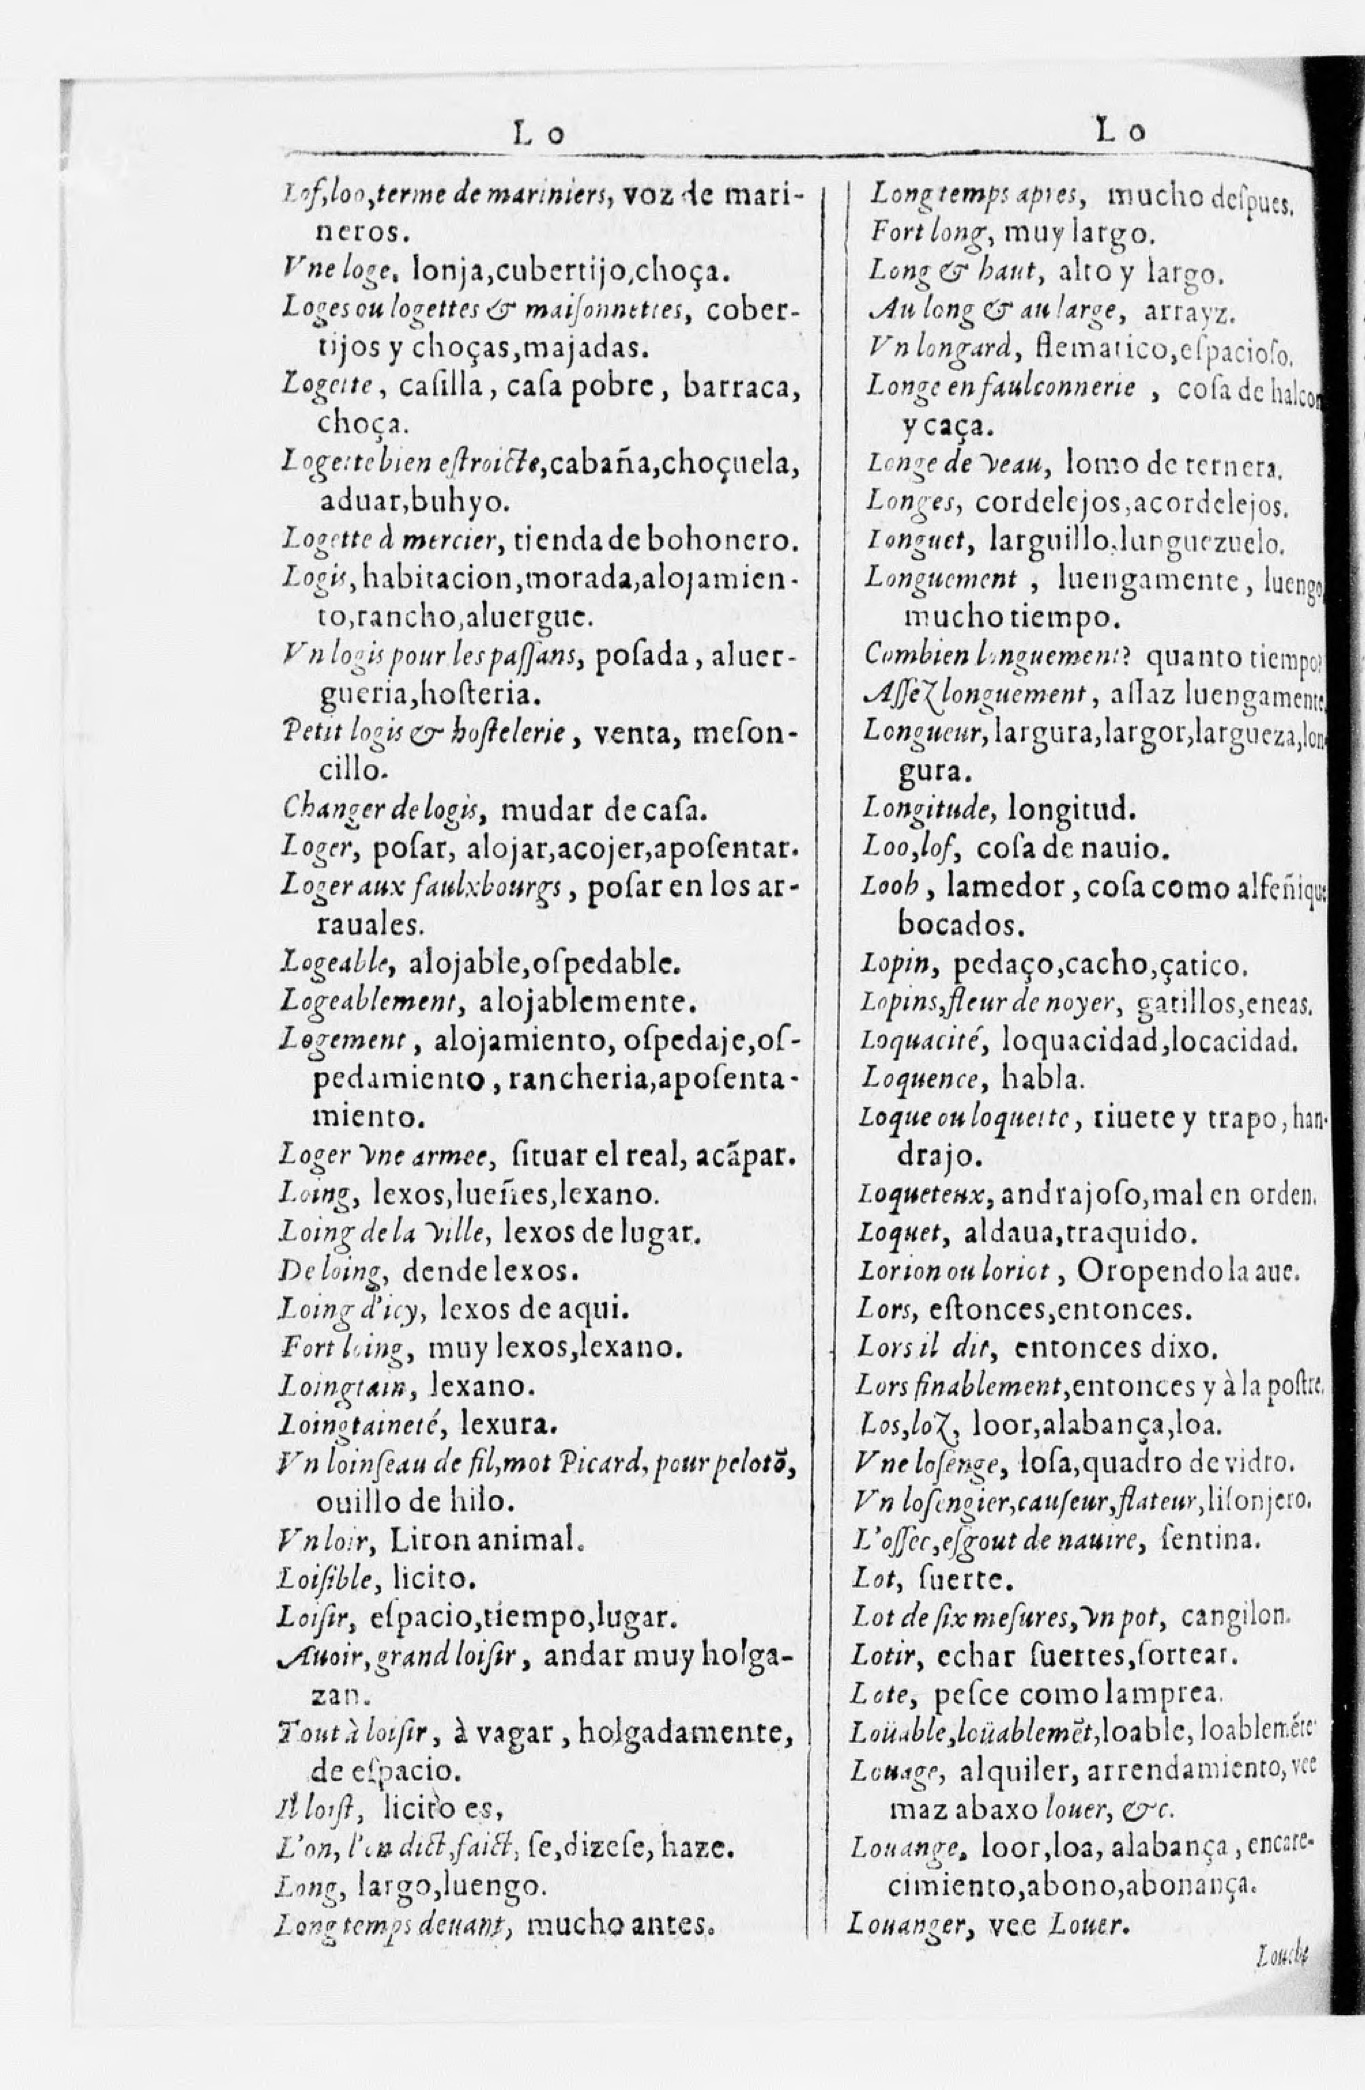 L o
Lof, loo, terme de mariniers, voz de mari-
neros.
Vne loge, lonja, cubertijo, choça.
Loges ou logettes & maiſonnettes, cober-
tijos y choças, majadas.
Logette, caſilla, caſa pobre, barraca,
choça.
Logette bien eſtroicte, cabaña, choçuela,
aduar, buhyo.
Logette à mercier, tienda de bohonero.
Logis, habitacion, morada, alojamien-
to, rancho, aluergue.
Vn logis pour les paſſans, poſada, aluer-
gueria, hoſteria.
Petit logis & hoſtelerie, venta, meſon-
cillo.
Changer de logis, mudar de caſa.
Loger, poſar, alojar, acojer, apoſentar.
Loger aux faulxbourgs, poſar en los ar-
rauales.
Logeable, alojable, oſpedable.
Logeablement, alojablemente.
Logement, alojamiento, oſpedaje, oſ-
pedamiento, rancheria, apoſenta-
miento.
Loger vne armee, ſituar el real, acãpar.
Loing, lexos, lueñes, lexano.
Loing de la ville, lexos de lugar.
De loing, dende lexos.
Loing d'icy, lexos de aqui.
Fort loing, muy lexos, lexano.
Loingtain, lexano.
Loingtaineté, lexura.
Vn loinſeau de fil, mot Picard, pour pelotõ,
ouillo de hilo.
Vn loir, Liron animal.
Loiſible, licito.
Loiſir, eſpacio, tiempo, lugar.
Auoir, grand loiſir, andar muy holga-
zan.
Tout à loiſir, à vagar, holgadamente,
de eſpacio.
Il loiſt, licito es,
L'on, l'en dict, faict, ſe, dizeſe, haze.
Long, largo, luengo.
Long temps deuant, mucho antes.
L o
Long temps apres, mucho deſpues.
Fort long, muy largo.
Long & haut, alto y largo.
Au long & au large, arrayz.
Vn longard, flematico, eſpacioſo.
Longe en faulconnerie, coſa de halcon
y caça.
Longe de veau, lomo de ternera.
Longes, cordelejos, acordelejos.
Longuet, larguillo, lunguezuelo.
Longuement, luengamente, luengo,
mucho tiempo.
Combien longuement? quanto tiempo?
Aſſez longuement, aſſaz luengamente.
Longueur, largura, largor, largueza, lon-
gura.
Longitude, longitud.
Loo, lof, coſa de nauio.
Looh, lamedor, coſa como alfeñique
bocados.
Lopin, pedaço, cacho, çatico.
Lopins, fleur de noyer, gatillos, eneas.
Loquacité, loquacidad, locacidad.
Loquence, habla.
Loque ou loquette, riuete y trapo, han-
drajo.
Loqueteux, andrajoſo, mal en orden.
Loquet, aldaua, traquido.
Lorion ou loriot, Oropendola aue.
Lors, eſtonces, entonces.
Lors il dit, entonces dixo.
Lors finablement, entonces y à la poſtre.
Los, loz, loor, alabança, loa.
Vne loſenge, loſa, quadro de vidro.
Vn loſengier, cauſeur, flateur, liſonjero.
L'oſſec, eſgout de nauire, ſentina.
Lot, ſuerte.
Lot de ſix meſures, vn pot, cangilon.
Lotir, echar ſuertes, ſortear.
Lote, peſce como lamprea.
Loüable, loüablemẽt, loable, loablemẽte
Louage, alquiler, arrendamiento, vee
maz abaxo louer, &c.
Louange, loor, loa, alabança, encare-
cimiento, abono, abonança.
Louanger, vee Louer.
Louche